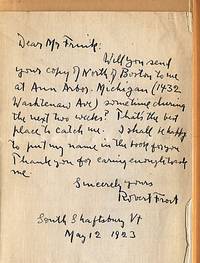 Dear Mr Frink:
Will you send
your copy of North of Boston to me
at Ann Arbor, Michigan (1432
Washtenaw Ave) sometime during
the next two weeks? That's the best
place to catch me. I shall be happy
to put my name in the book for you
Thank you for caring enough to ask
me.
Sincerely yours
Robert Frost
South Shaftsbury Vt
May 12 1923